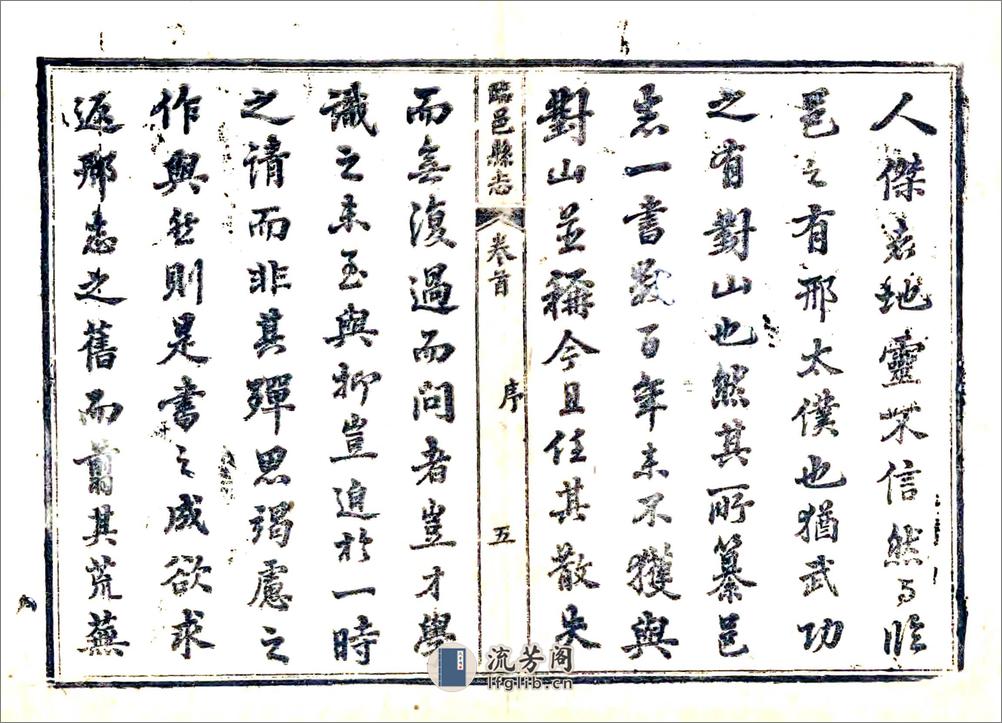 人傑者地靈不信然与臨
邑之有邢太僕也猶武功
之有對山也然其所纂邑
志一書幾百年来不獲與
對山並稱今且任其散失
臨邑縣志 卷首 序 五
而無復過而問者豈才學
識之未至與抑豈迫於一時
之請而非其殫思竭慮之
作與然則是書之成欲求
返邢志之舊而翦其荒蕪
流芳阁
lfglib.cn